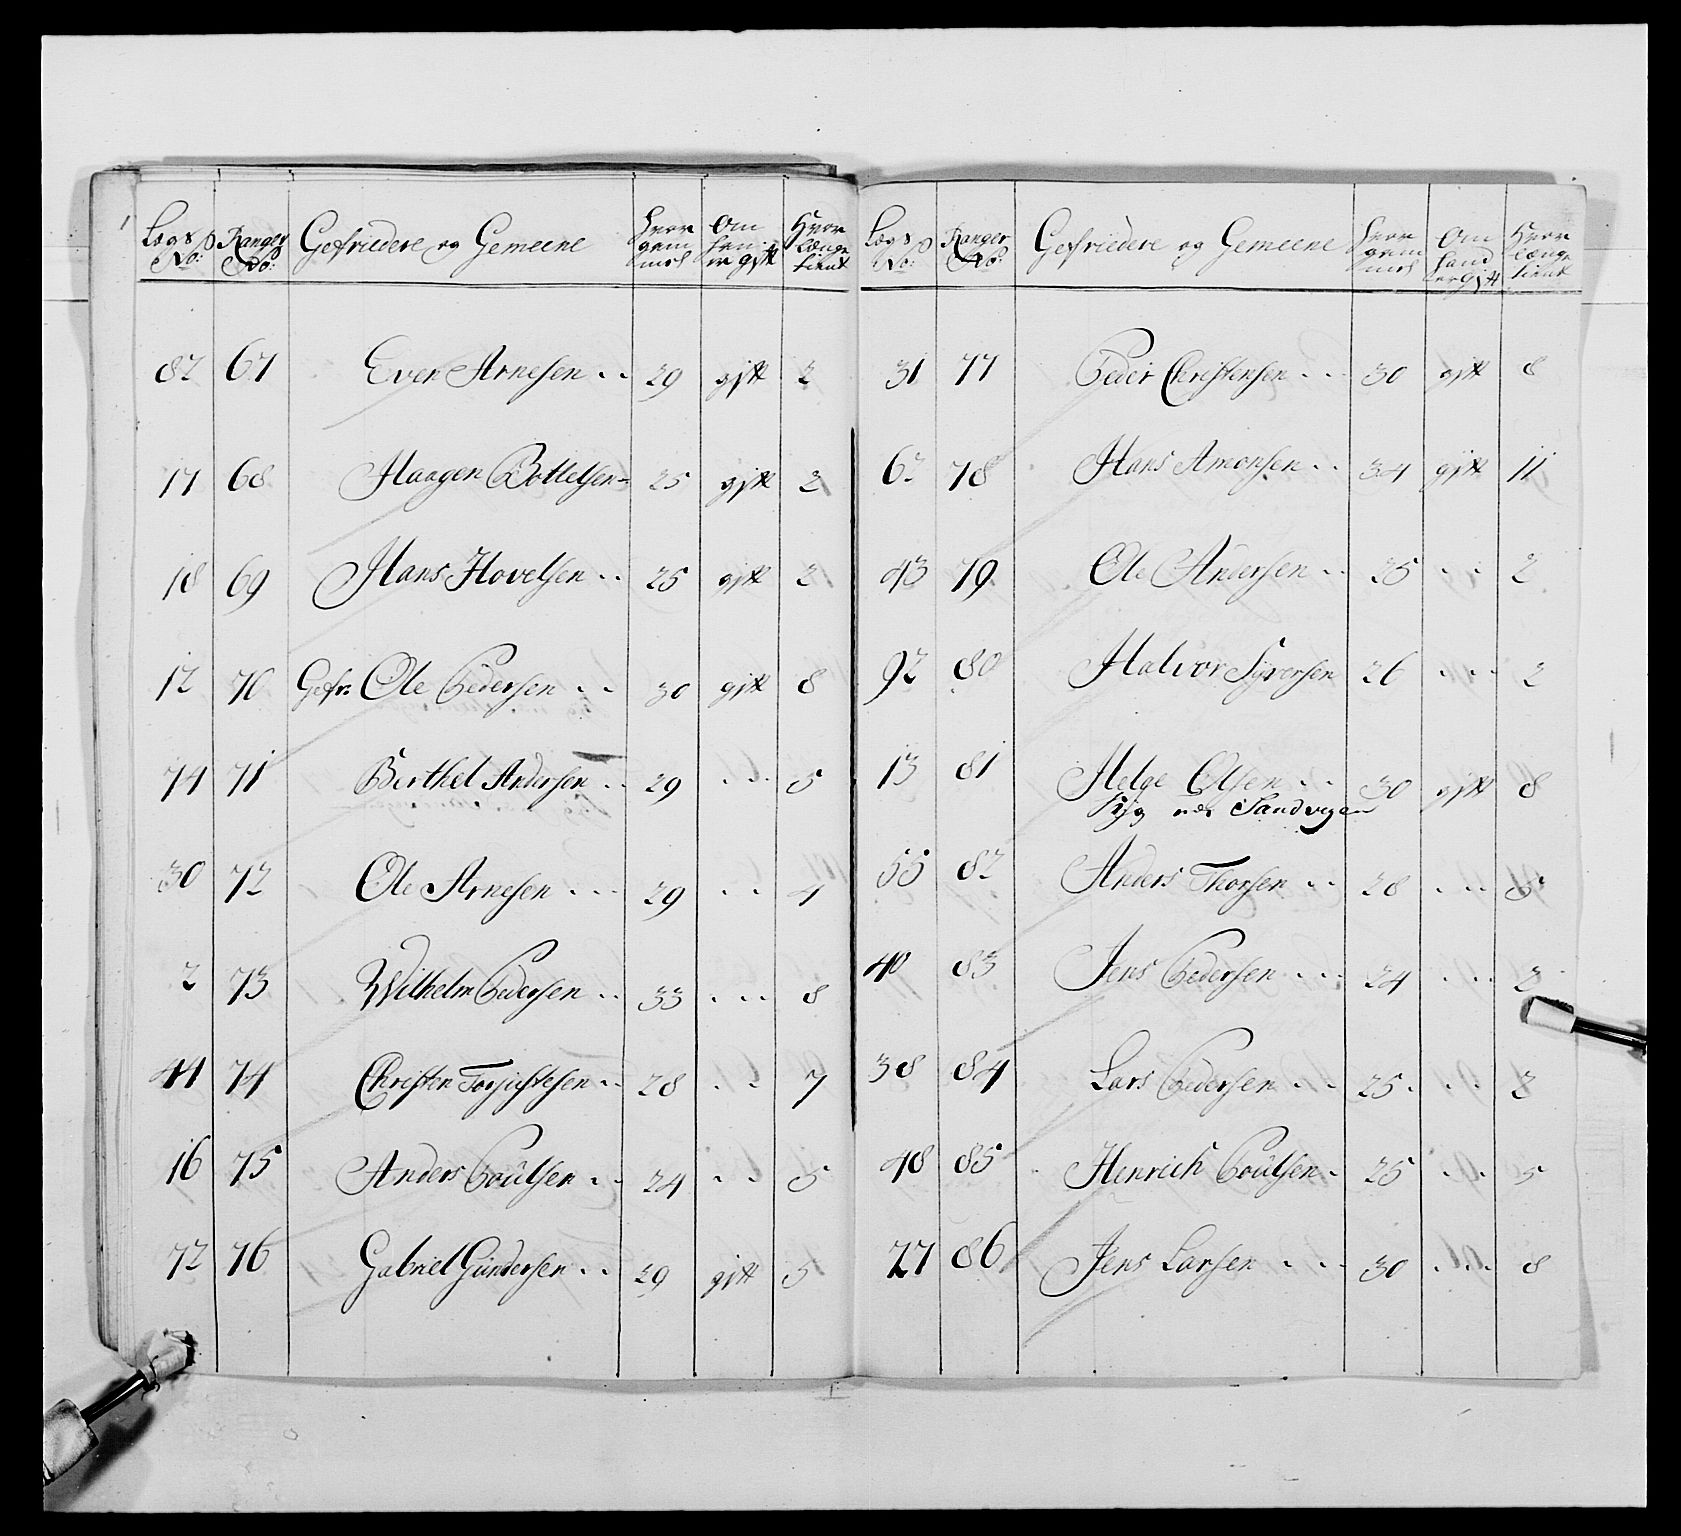 Lægs No: Ranger No: Gefriedere og Gemeene Hvor gam mel Om han er gift Hvor længe tient
82 67 Even Arnesen 29 gift 2
17 68 Haagen Bottelsen 25 gift 2
18 69 Hans Hovelsen 25 gift 2
12 70 Gefr. Ole Pedersen 30 gift 8
74 71 Berthel Andersen 29 5
30 72 Ole Arnesen 29 4
2 73 Wilhelm Pedersen 33 8
44 74 Christen 28 7
16 75 Anders Poulsen 24 5
72 76 Gabriel Gundersen 29 gift 5
Lægs No: Ranger No: Gefriedere og Gemeene Hvor gam mel Om hand er gift Hvor længe tient
31 77 Peder Christensen 30 gift 8
62 78 Hans Amonsen 34 gift 11
43 79 Ole Andersen 25 2
92 80 Halvor Syversen 26 2
13 81 Helge Olsen 30 gift 8
Syg ved Sandvigen
55 82 Anders Thorsen 28 5
40 83 Jens Pedersen 24 2
38 84 Lars Pedersen 25 2
48 85 Henrich Poulsen 25 5
27 86 Jens Larsen 30 8